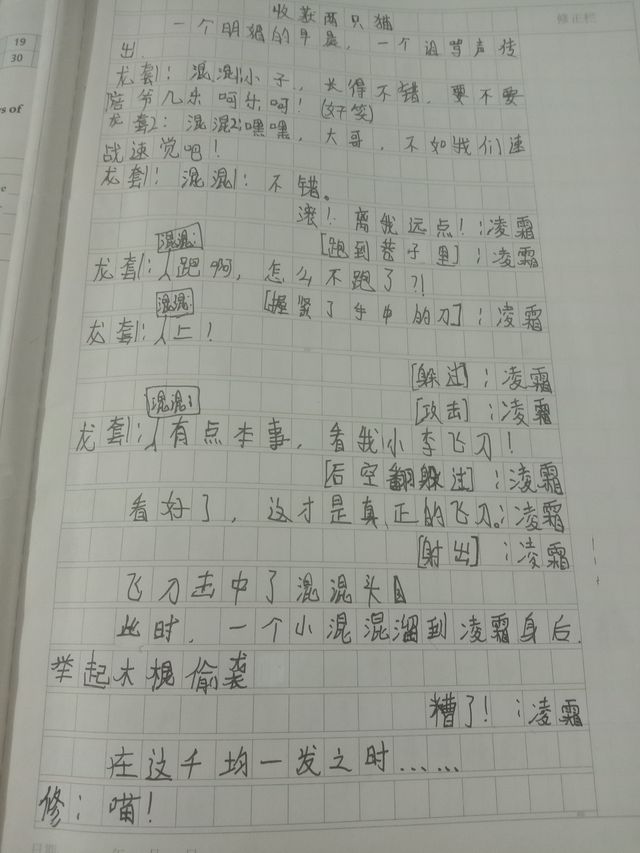 收获两只猫
修正栏
一个明媚的早晨，一个诅骂声传
出.
19
30
龙套1：混混1:小子，长得不错，要不要
陪爷几乐呵乐呵！(奸笑)
s of
龙套2：混混2:嘿嘿，大哥，不如我们速
战速觉吧！
龙套1：混混1：不错。
滚！离我远点！:凌霜
[跑到巷子里]：凌霜
混混1:
龙套1：跑啊，怎么不跑了?!
[握紧了手中的刀]：凌霜
混混:
龙套1：上！
[躲过]：凌霜
[攻击]：凌霜
混混1
龙套1：有点本事，看我小李飞刀！
[后空翻躲过]：凌霜
看好了，这才是真正的飞刀。:凌霜
[射出]：凌霜
飞刀击中了混混头目
此时，一个小混混溜到凌霜身后，
举起木棍偷袭
糟了！:凌霜
在这千均一发之时……
修：喵！
日期